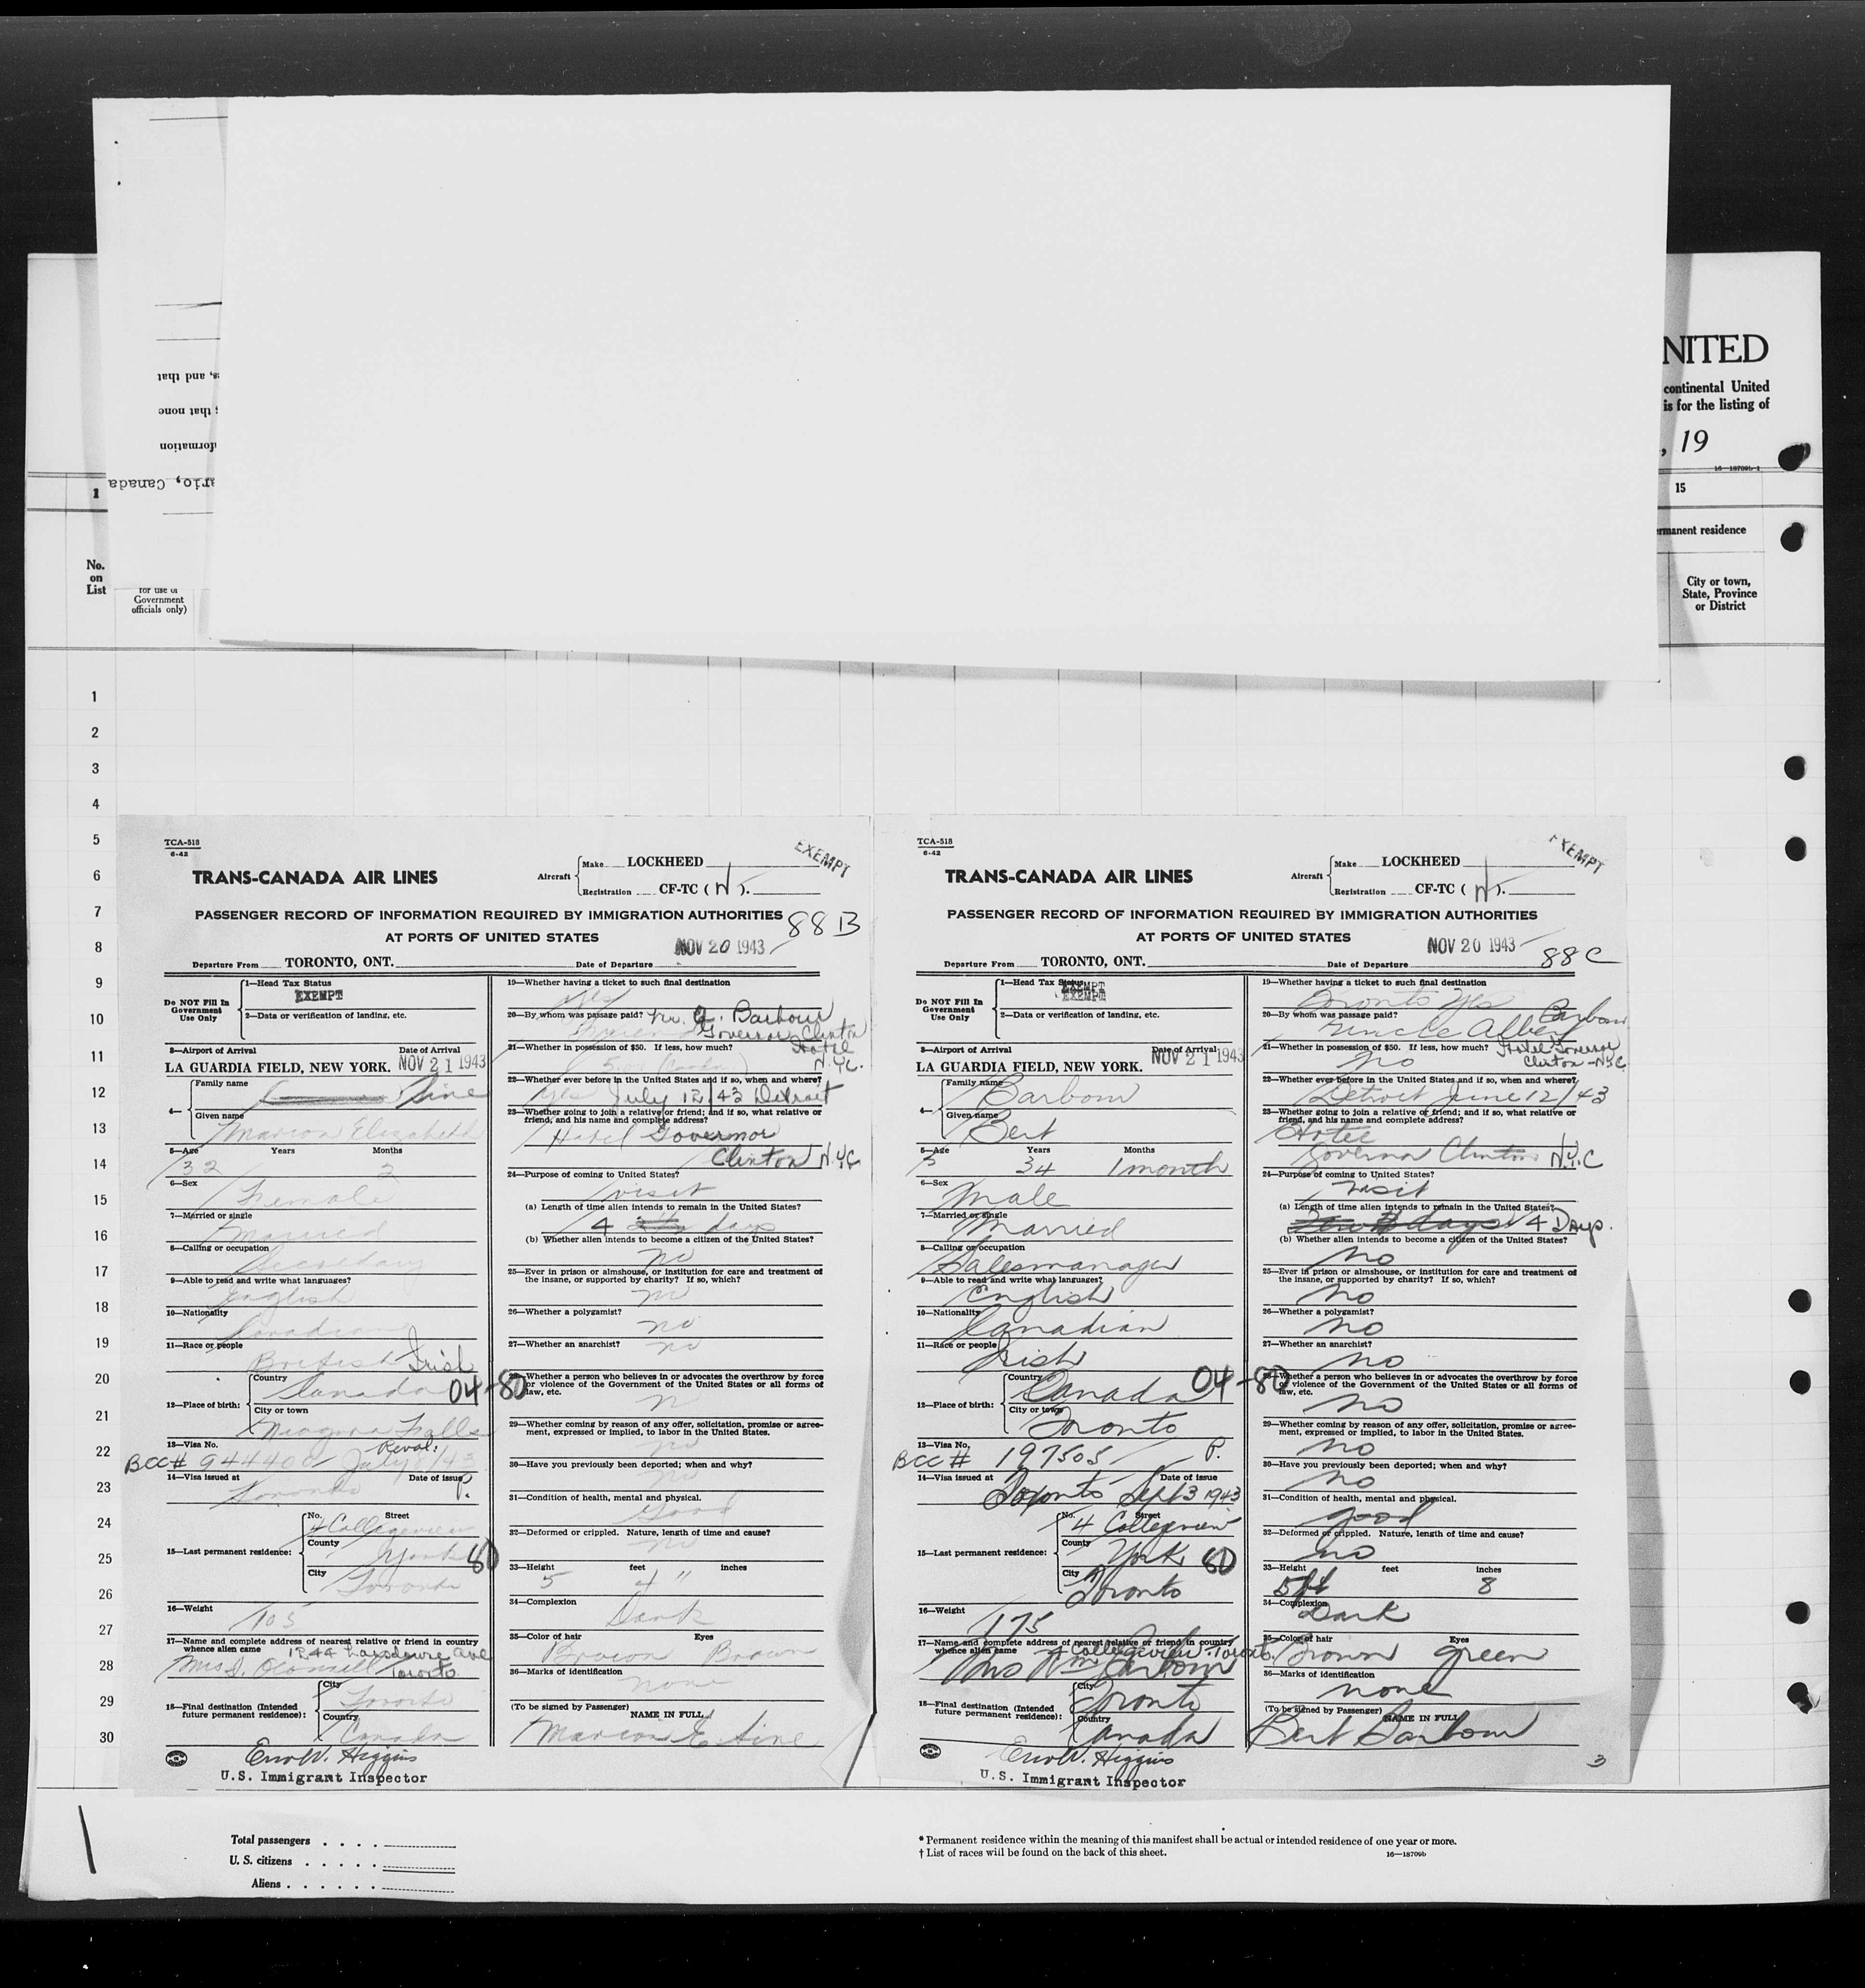 NITED
continental United
is for the listing of
, 19
16—18709b-1
s, and that
; that none
formation
ario, Canada
1
15
rmanent residence
No.
on
List
for use of
Government
officials only)
City or town,
State, Province
or District
1
2
3
4
5
6
7
8
9
10
11
12
13
14
15
16
17
18
19
20
21
22
23
24
25
26
27
28
29
30
TCA-518
6-42
EXEMPT
TRANS-CANADA AIR LINES
Aircraft
Make LOCKHEED
Registration CF-TC ( N ).
PASSENGER RECORD OF INFORMATION REQUIRED BY IMMIGRATION AUTHORITIES
88B
AT PORTS OF UNITED STATES
NOV 20 1943
Departure From TORONTO, ONT. Date of Departure
Do NOT Fill In
Government
Use Only
1—Head Tax Status
EXEMPT
2—Data or verification of landing, etc.
3—Airport of Arrival Date of Arrival
LA GUARDIA FIELD, NEW YORK. NOV 21 1943
4— Family name Sine
Given name
Marion Elizabeth
5—Age Years Months
32 2
6—Sex
Female
7—Married or single
Married
8—Calling or occupation
Secretary
9—Able to read and write what languages?
English
10—Nationality
Canadian
11—Race or people
British Irish
12—Place of birth:
Country
Canada 04-80
City or town
Niagara Falls
13—Visa No. Reval:
BCC# 944400 July 8/43
14—Visa issued at Date of issue
Toronto P.
15—Last permanent residence:
No. Street
4 Collegeview
County
York 80
City
Toronto
16—Weight
105
17—Name and complete address of nearest relative or friend in country
whence alien came 1244 Lansdowne Ave
Mrs. Toronto
18—Final destination (Intended
future permanent residence):
City
Toronto
Country
Canada
Errol W. Higgins
U.S. Immigrant Inspector
19—Whether having a ticket to such final destination
Yes
20—By whom was passage paid? Mr. A. Barbour
Governor Clinton
Hotel
N.Y.C.
21—Whether in possession of $50. If less, how much?
22—Whether ever before in the United States and if so, when and where?
Yes July 12/43 Detroit
23—Whether going to join a relative or friend; and if so, what relative or
friend, and his name and complete address?
Hotel Governor
Clinton N.Y.C
24—Purpose of coming to United States?
visit
(a) Length of time alien intends to remain in the United States?
4 days
(b) Whether alien intends to become a citizen of the United States?
no
25—Ever in prison or almshouse, or institution for care and treatment of
the insane, or supported by charity? If so, which?
no
26—Whether a polygamist?
no
27—Whether an anarchist?
no
28—Whether a person who believes in or advocates the overthrow by force
or violence of the Government of the United States or all forms of
law, etc.
n
29—Whether coming by reason of any offer, solicitation, promise or agree-
ment, expressed or implied, to labor in the United States.
no
30—Have you previously been deported; when and why?
no
31—Condition of health, mental and physical.
Good
32—Deformed or crippled. Nature, length of time and cause?
no
33—Height feet inches
5 4 "
34—Complexion
Dark
35—Color of hair Eyes
Brown Brown
36—Marks of identification
none
(To be signed by Passenger) NAME IN FULL
Marion E Sine
TCA-518
6-42
EXEMPT
TRANS-CANADA AIR LINES
Aircraft
Make LOCKHEED
Registration CF-TC ( N ).
PASSENGER RECORD OF INFORMATION REQUIRED BY IMMIGRATION AUTHORITIES
AT PORTS OF UNITED STATES
NOV 20 1943
88C
Departure From TORONTO, ONT. Date of Departure
Do NOT Fill In
Government
Use Only
1—Head Tax Status
EXEMPT
EXEMPT
2—Data or verification of landing, etc.
3—Airport of Arrival Date of Arrival
LA GUARDIA FIELD, NEW YORK. NOV 21 1943
4— Family name
Barbour
Given name
Bert
5—Age Years Months
34 1 month
6—Sex
Male
7—Married or single
Married
8—Calling or occupation
Salesmanager
9—Able to read and write what languages?
English
10—Nationality
Canadian
11—Race or people
Irish
12—Place of birth:
Country
Canada 04-80
City or town
Toronto
13—Visa No.
BCC # 197505 P.
14—Visa issued at Date of issue
Toronto Sept 3 1943
15—Last permanent residence:
No. Street
4 Collegeview
County
York 80
City
Toronto
16—Weight
175
17—Name and complete address of nearest relative or friend in country
whence alien came 4 Collegeview Toronto.
Mrs Wm Barbour
18—Final destination (Intended
future permanent residence):
City
Toronto
Country
Canada
Errol W. Higgins
U.S. Immigrant Inspector
19—Whether having a ticket to such final destination
Toronto Yes
20—By whom was passage paid? Barbour
Uncle Albert
21—Whether in possession of $50. If less, how much? Hotel Governor
no Clinton - N.Y.C
22—Whether ever before in the United States and if so, when and where?
Detroit June 12/43
23—Whether going to join a relative or friend; and if so, what relative or
friend, and his name and complete address?
Hotel
Governor Clinton N.Y.C
24—Purpose of coming to United States?
Visit
(a) Length of time alien intends to remain in the United States?
days 4 Days.
(b) Whether alien intends to become a citizen of the United States?
no
25—Ever in prison or almshouse, or institution for care and treatment of
the insane, or supported by charity? If so, which?
no
26—Whether a polygamist?
no
27—Whether an anarchist?
no
28—Whether a person who believes in or advocates the overthrow by force
or violence of the Government of the United States or all forms of
law, etc.
no
29—Whether coming by reason of any offer, solicitation, promise or agree-
ment, expressed or implied, to labor in the United States.
no
30—Have you previously been deported; when and why?
no
31—Condition of health, mental and physical.
good
32—Deformed or crippled. Nature, length of time and cause?
no
33—Height feet inches
5 ft 8
34—Complexion
Dark
35—Color of hair Eyes
Brown green
36—Marks of identification
none
(To be signed by Passenger) NAME IN FULL
Bert Barbour
3
Total passengers . . . .
U. S. citizens . . . . .
Aliens . . . . . .
* Permanent residence within the meaning of this manifest shall be actual or intended residence of one year or more.
† List of races will be found on the back of this sheet.
16—18709b